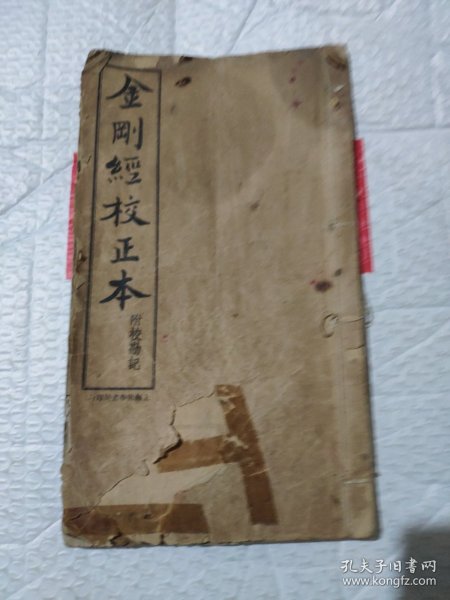 金剛經校正本
附校勘記
孔夫子旧书网
www.kongfz.com